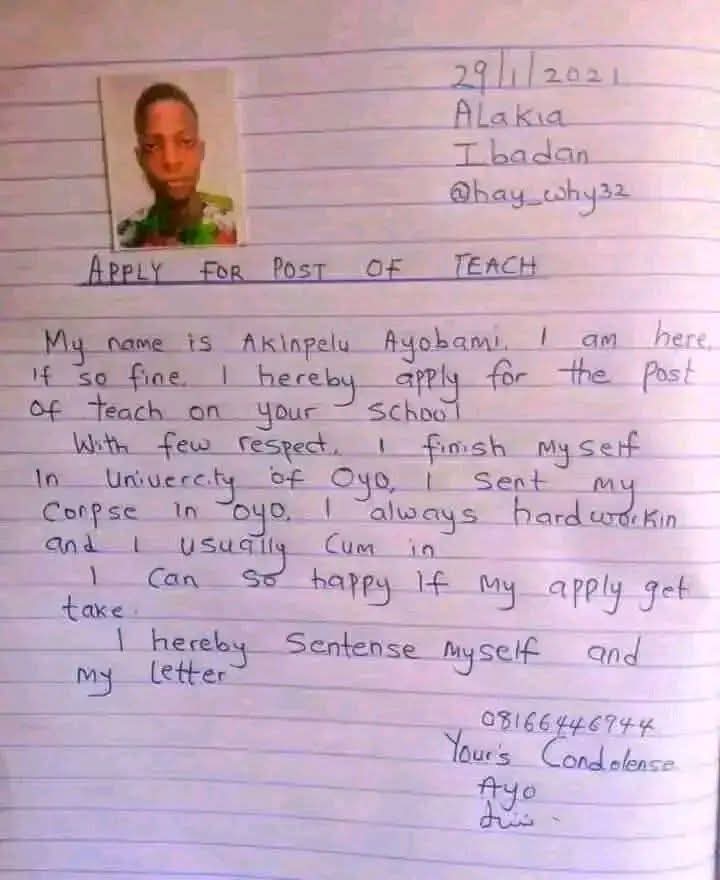 29/1/2021
Alakia
Ibadan
@hay_why32
APPLY FOR POST OF TEACH
My name is Akinpelu Ayobami. I am here,
if so fine. I hereby apply for the post
of teach on your school
With few respect, I finish my serf
in univercity of Oyo, I sent my
corpse in oyo. I always hardworkin
and I usually cum in
I can so happy if my apply get
take.
I hereby sentense myself and
my letter
08166446944
Your's Condolense
Ayo